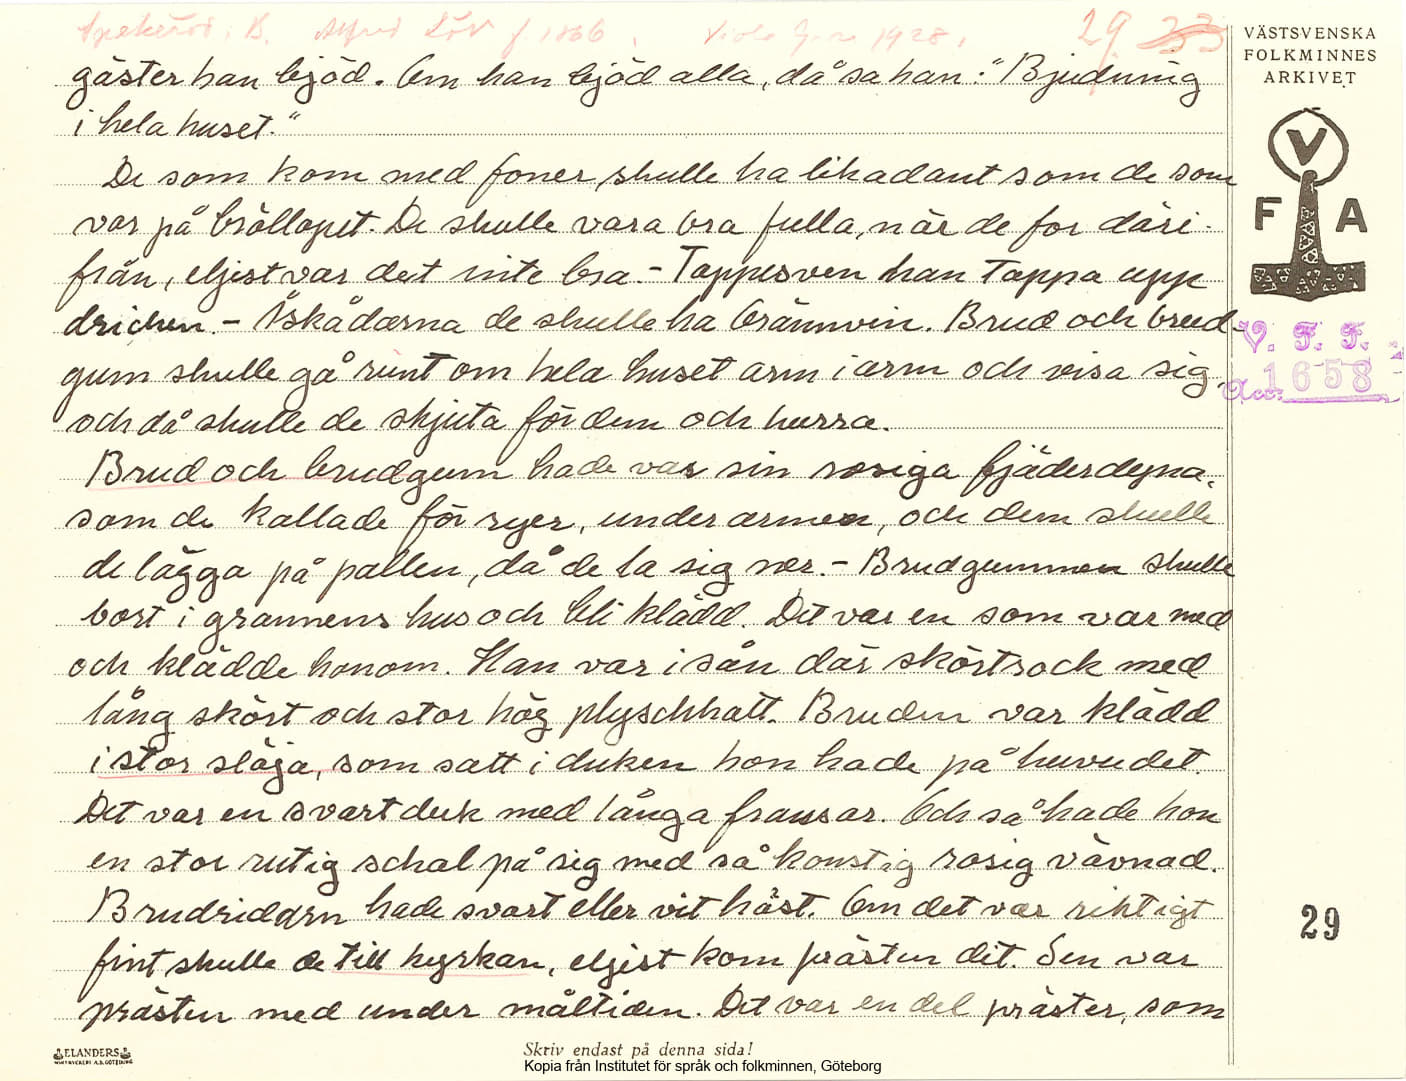 Spekeröd. B. Alfred Löv f. 1866. 1928. 29 33
gäster han bjöd. Om han bjöd alla, då sa han: "Bjudning
i hela huset."
De som kom med foner, skulle ha likadant som de som
var på bröllopet. De skulle vara bra fulla, när de for däri-
från, eljest var det inte bra. - Tappesven han tappa upp
dricken. - Åskådarna de skulle ha brännvin. Brud och brud-
gum skulle gå runt om hela huset arm i arm och visa sig,
och då skulle de skjuta för dem och hurra.
Brud och brudgum hade var sin rosiga fjäderdyna,
som de kallade för ryer, under armen, och dem skulle
de lägga på pallen, då de la sig ner. - Brudgummen skulle
bort i grannens hus och bli klädd. Det var en som var med
och klädde honom. Han var i sån där skörtrock med
lång skört och stor hög plyschhatt. Bruden var klädd
i stor slöja, som satt i duken hon hade på huvudet.
Det var en svart duk med långa fransar. Och så hade hon
en stor rutig schal på sig med så konstig rosig vävnad.
Brudridarn hade svart eller vit häst. Om det var riktigt
fint skulle de till kyrkan, eljest kom prästen dit. Sen var
prästen med under måltiden. Det var en del präster, som
VÄSTSVENSKA
FOLKMINNES
ARKIVET
V
F A
V. F. F.
Acc. 1658
29
ELANDERS
Skriv endast på denna sida!
Kopia från Institutet för språk och folkminnen, Göteborg